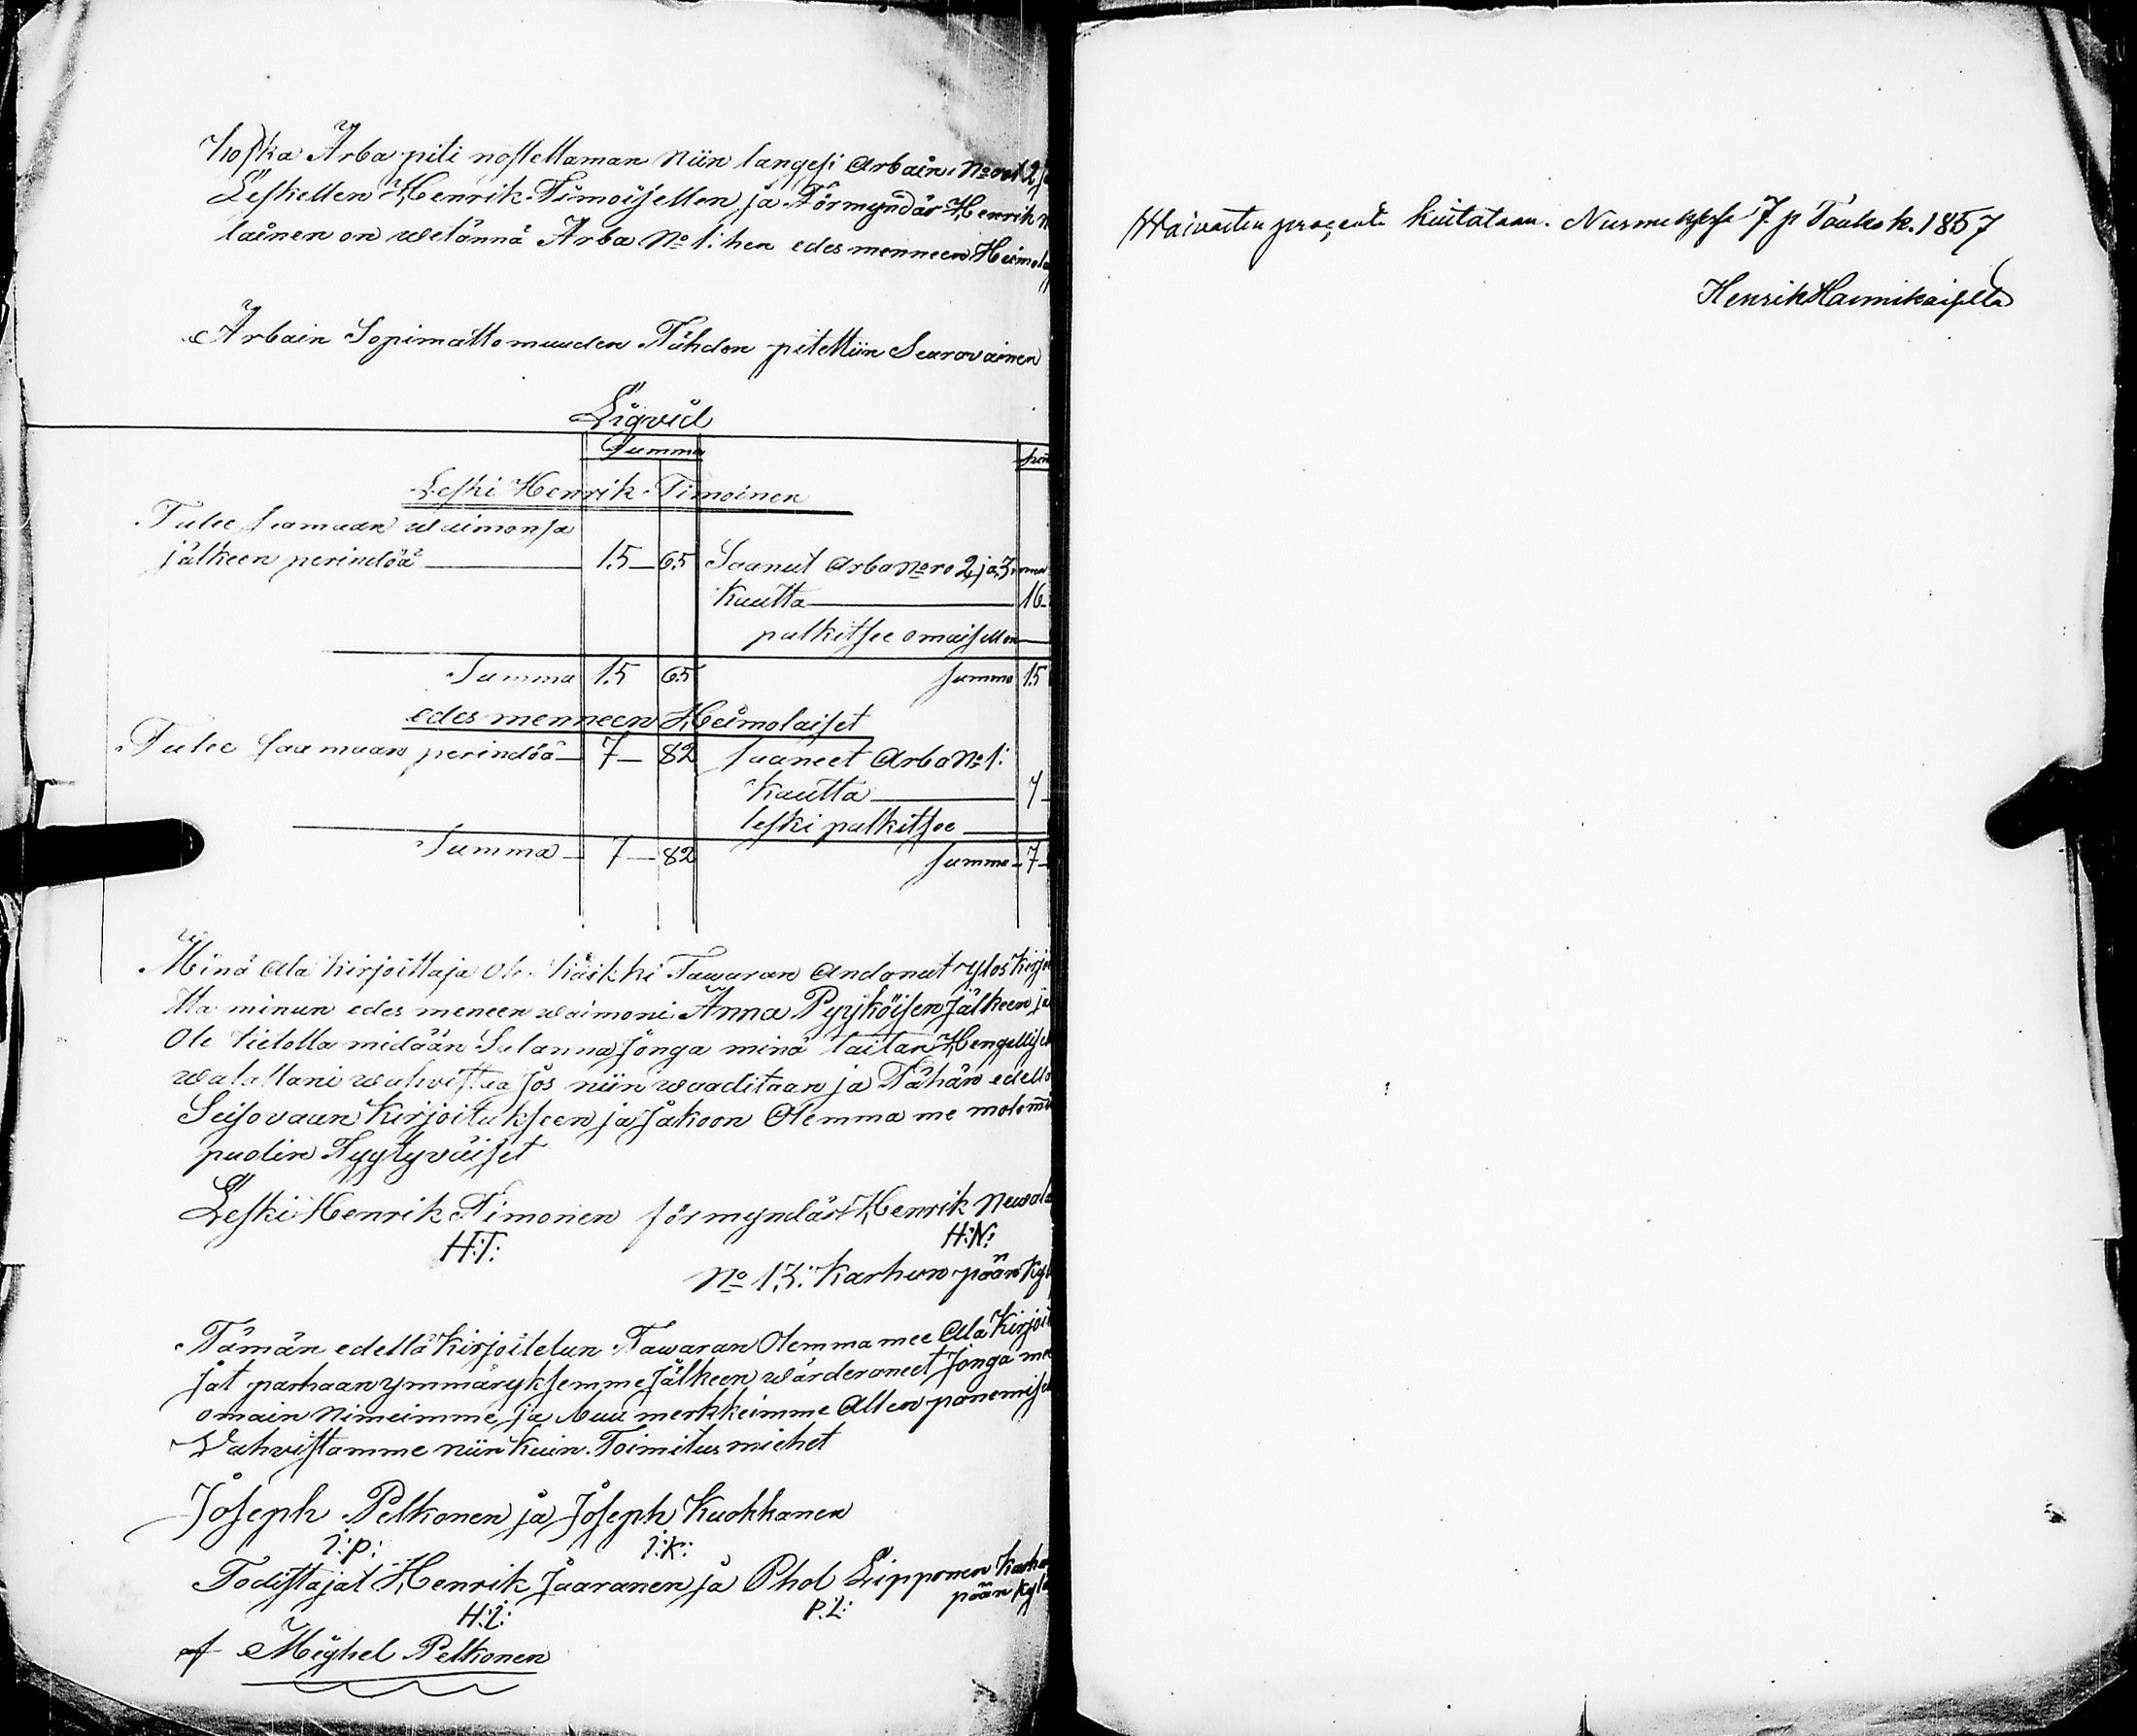 Koska Arba piti nostettaman Niin langesi Arbain No
Leskellen Henrik Timoisellen ja Förmyndär Henrik
lainen on wetännä Arba No 1: hen edes menneen Heimola
Arbain Sopimattomuuden Tähden pitettiin Seurovainen
Liqvid
Summa
Leski Henrik Timoinen
Tulee saamaan waimonsa
jälkeen perindöä — 15 — 65 Saanut Arba No ro 2 ja 3
kautta — 16
palkitsee omaisellen —
Summa 15 65 summa 15
edes menneen Heimolaiset
Tulee saamaan perindöä — 7 — 82 saaneet Arba No 1:
kautta — 7
leski palkitsee —
Summa — 7 — 82 summa — 7
Minä ala kirjoittaja Ole kaikki Tawaran Andanut ylös kirjoi
tta minun edes meneen waimoni Anna Pyyköisen jälkeen ja
Ole tietolla midään Salanna Jonga minä taitan Hengellisel
walallani wahvistaa jos niin waaditaan ja Tähän edellä
Seisovaan kirjoitukseen ja jakoon Olemma me molem̄in
puolin Tyytyväiset
Leski Henrik Timonen förmyndär Henrik Newala
H:T: H:N:
No 13: Karhun pään kyl
Tämän edellä kirjoitetun Tawaran Olemma mee Ala kirjoit
jat parhaan ymmäryksemme jälkeen wärderaneet Jonga me
omain Nimeimme ja buu merkkeimme Allen panemisel
Vahvistamme niin kuin Toimitus miehet
Joseph Pelkonen ja Joseph Kuokkanen
J:P: J:K:
Todistajat Henrik Jaaranen ja Phol Lipponen Karhun
H:J: P:L: pään kylä
af Mighel Pelkonen
Waivasten procenti kuitataan. Nurmeksessa 7 p Touko k. 1857
Henrik Hannikaiselta